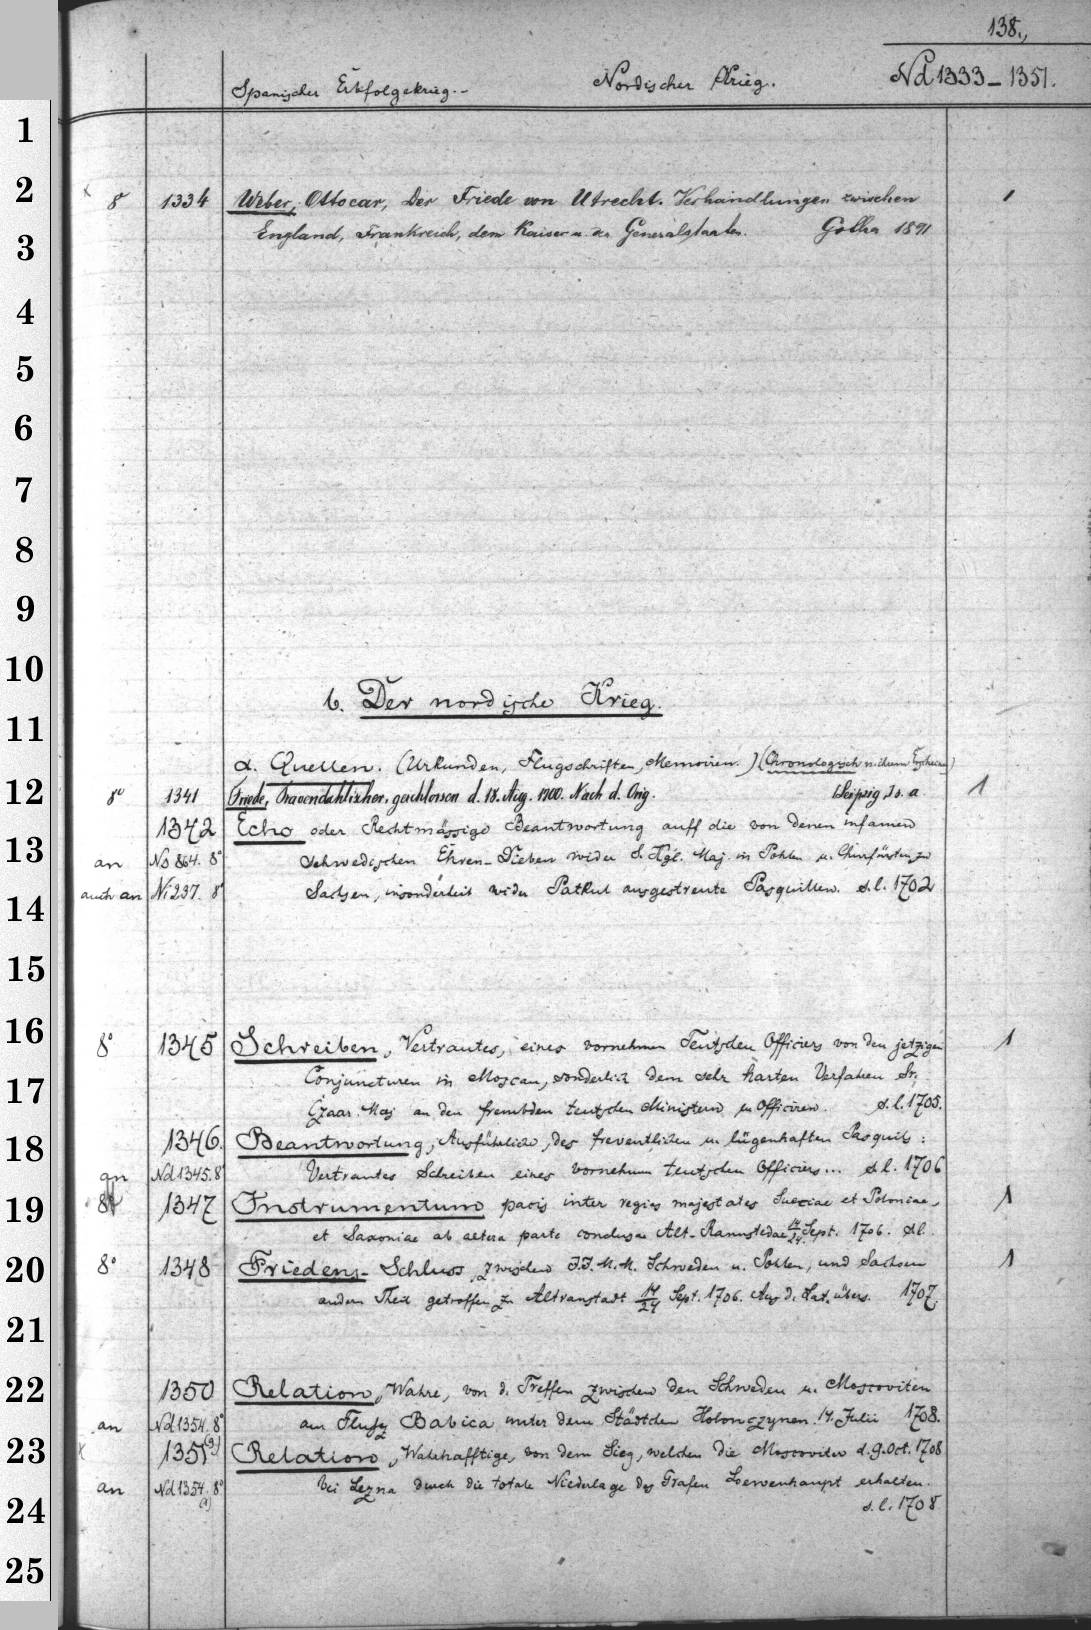 138.,
Spanischer Erbfolgekrieg.- Nordischer Krieg. Nd 1333-1351.
8° 1334 Weber, Ottocar, Der Friede von Utrecht. Verhandlungen zwischen 1
England, Frankreich, dem Kaiser u. den Generalstaaten. Gotha 1891
b. Der nordische Krieg.
α. Quellen. (Urkunden, Flugschriften, Memoiren.) (Chronologisch
8° 1341 Friede, Travendahlischer, geschlossen d. 18. Aug. 1700. Nach d. Orig. Leipzig, s. a. 1
1342 Echo oder Rechtmässige Beantwortung auff die von denen infamen
an No 864. 8° schwedischen Ehren-Dieben wider S. Kgl. Maj. in Pohlen u. Churfürsten zu
auch an Ni 237. 8° Sachsen, insonderheit wider Patkul ausgestreute Pasquillen. s. l. 1702
8° 1345 Schreiben, Vertrautes, eines vornehmen Teutschen Officiers von den jetzigen 1
Conjuncturen in Moscau, sonderlich dem sehr harten Verfahren Sr.
Czaar. Maj. an den frembden teutschen Ministern u. Officiren. s. l. 1705.
1346. Beantwortung, Ausführliche, des freventlichen u. lügenhaften Pasquils:
an Nd 1345. 8° Vertrautes Schreiben eines vornehmen teutschen Officiers... s. l. 1706
8° 1347 Instrumentum pacis inter regias majestates Sueciae et Poloniae, 1
et Saxoniae ab altera parte conclusae Alt-Rannstadae 14/24. Sept. 1706. s. l.
8° 1348 Friedens-Schluss, zwischen I.I. M. M. Schweden u. Pohlen, und Sachsen 1
andern Theil getroffen zu Altranstadt 14/24 Sept. 1706. Aus d. Lat. übers. 1707.
1350 Relation, Wahre, von d. Treffen zwischen den Schweden u. Moscoviten
an Nd 1354. 8° am Flusz Babica unter dem Städtchen Holowczynen. 14. Julii 1708.
1351 Relation, Wahrhafftige, von dem Sieg, welchen die Moscoviter d. 9. Oct. 1708
an Nd 1354. 8° bei Lezna durch die totale Niederlage des Grafen Loewenhaupt erhalten.
s. l. 1708
1
2
3
4
5
6
7
8
9
10
11
12
13
14
15
16
17
18
19
20
21
22
23
24
25